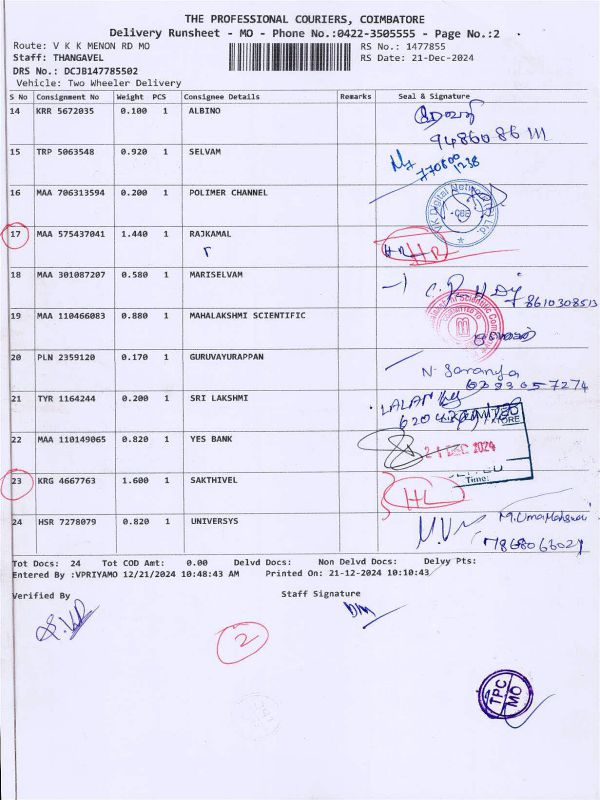 THE PROFESSIONAL COURIERS, COIMBATORE
Delivery Runsheet - MO - Phone No.:0422-3505555 - Page No.:2
Route: V K K MENON RD MO RS No.: 1477855
Staff: THANGAVEL RS Date: 21-Dec-2024
DRS No.: DCJB147785502
Vehicle: Two Wheeler Delivery
S No Consignment No Weight PCS Consignee Details Remarks Seal & Signature
14 KRR 5672035 0.100 1 ALBINO
15 TRP 5063548 0.920 1 SELVAM
16 MAA 706313594 0.200 1 POLIMER CHANNEL
17 MAA 575437041 1.440 1 RAJKAMAL HR
18 MAA 301087207 0.580 1 MARISELVAM 8610308513
19 MAA 110466083 0.880 1 MAHALAKSHMI SCIENTIFIC
20 PLN 2359120 0.170 1 GURUVAYURAPPAN N. Saranya
21 TYR 1164244 0.200 1 SRI LAKSHMI LALAN
22 MAA 110149065 0.820 1 YES BANK 21 DEC 2024
Time:
23 KRG 4667763 1.600 1 SAKTHIVEL HL
24 HSR 7278079 0.820 1 UNIVERSYS
Tot Docs: 24 Tot COD Amt: 0.00 Delvd Docs: Non Delvd Docs: Delvy Pts:
Entered By :VPRIYAMO 12/21/2024 10:48:43 AM Printed On: 21-12-2024 10:10:43
Verified By Staff Signature
2
TPC
MO